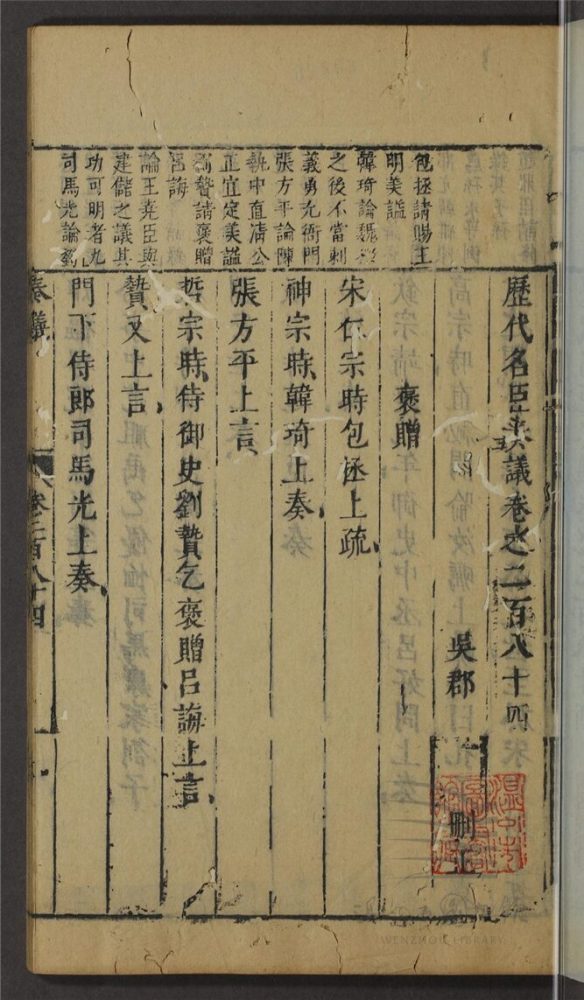 包拯請賜王
明美謚
韓琦論
之後不當刺
義勇充衙門
張方平論陳
執中直清公
正宜定美謚
贄請褒贈
呂誨
論王堯臣與
建儲之議其
功可明者九
司馬光論
歷代名臣奏議卷之二百八十四
吳郡
刪正
褒贈
宋仁宗時包拯上疏、
神宗時韓琦上奏、
張方平上言、
哲宗時侍御史劉贄乞褒贈呂誨上言、
贄又上言、
門下侍郎司馬光上奏、
奏議 卷二百八十四
WENZHOU LIBRARY